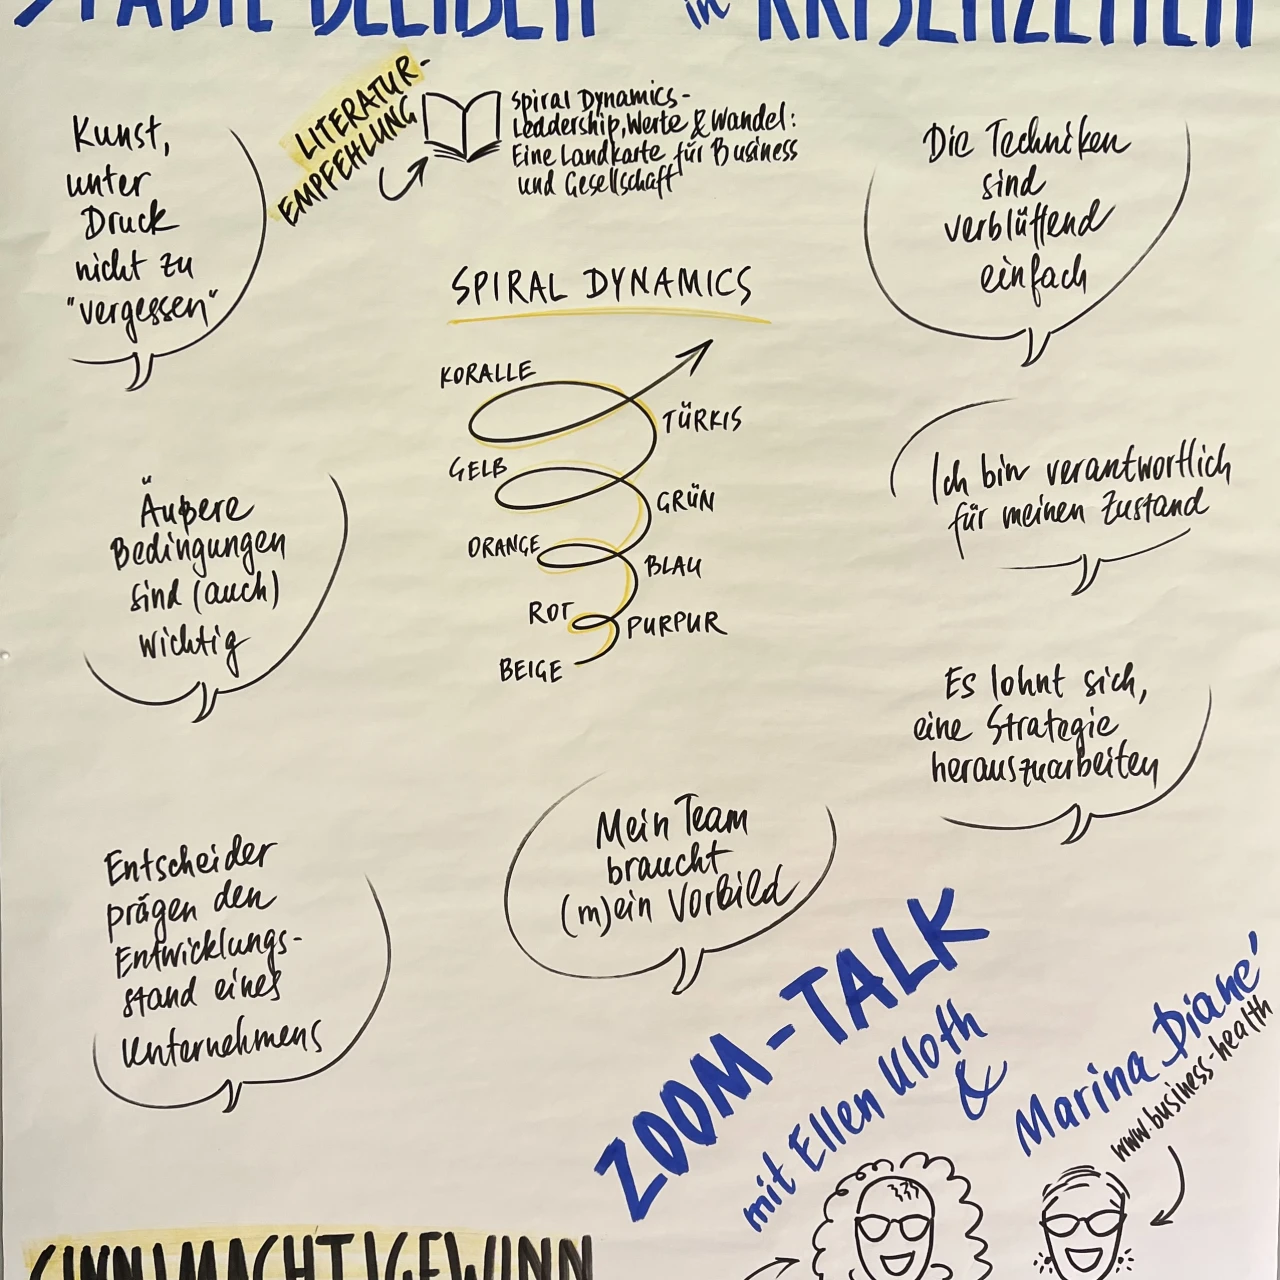 STABIL BLEIBEN in KRISENZEITEN
LITERATUR-
EMPFEHLUNG
Spiral Dynamics-
Leddership, Werte & Wandel:
Eine Landkarte für Business
und Gesellschaft
Kunst,
unter
Druck
nicht zu
"vergessen"
Die Techniken
sind
verblüffend
einfach
SPIRAL DYNAMICS
KORALLE
TÜRKIS
GELB
GRÜN
ORANGE
BLAU
ROT
PURPUR
BEIGE
Äußere
Bedingungen
sind (auch)
wichtig
Ich bin verantwortlich
für meinen Zustand
Es lohnt sich,
eine Strategie
herauszuarbeiten
Entscheider
prägen den
Entwicklungs-
stand eines
Unternehmens
Mein Team
braucht
(m)ein Vorbild
ZOOM-TALK
mit Ellen Kloth
&
Marina Diané
www.business-health
SINN|MACHT|GEWINN